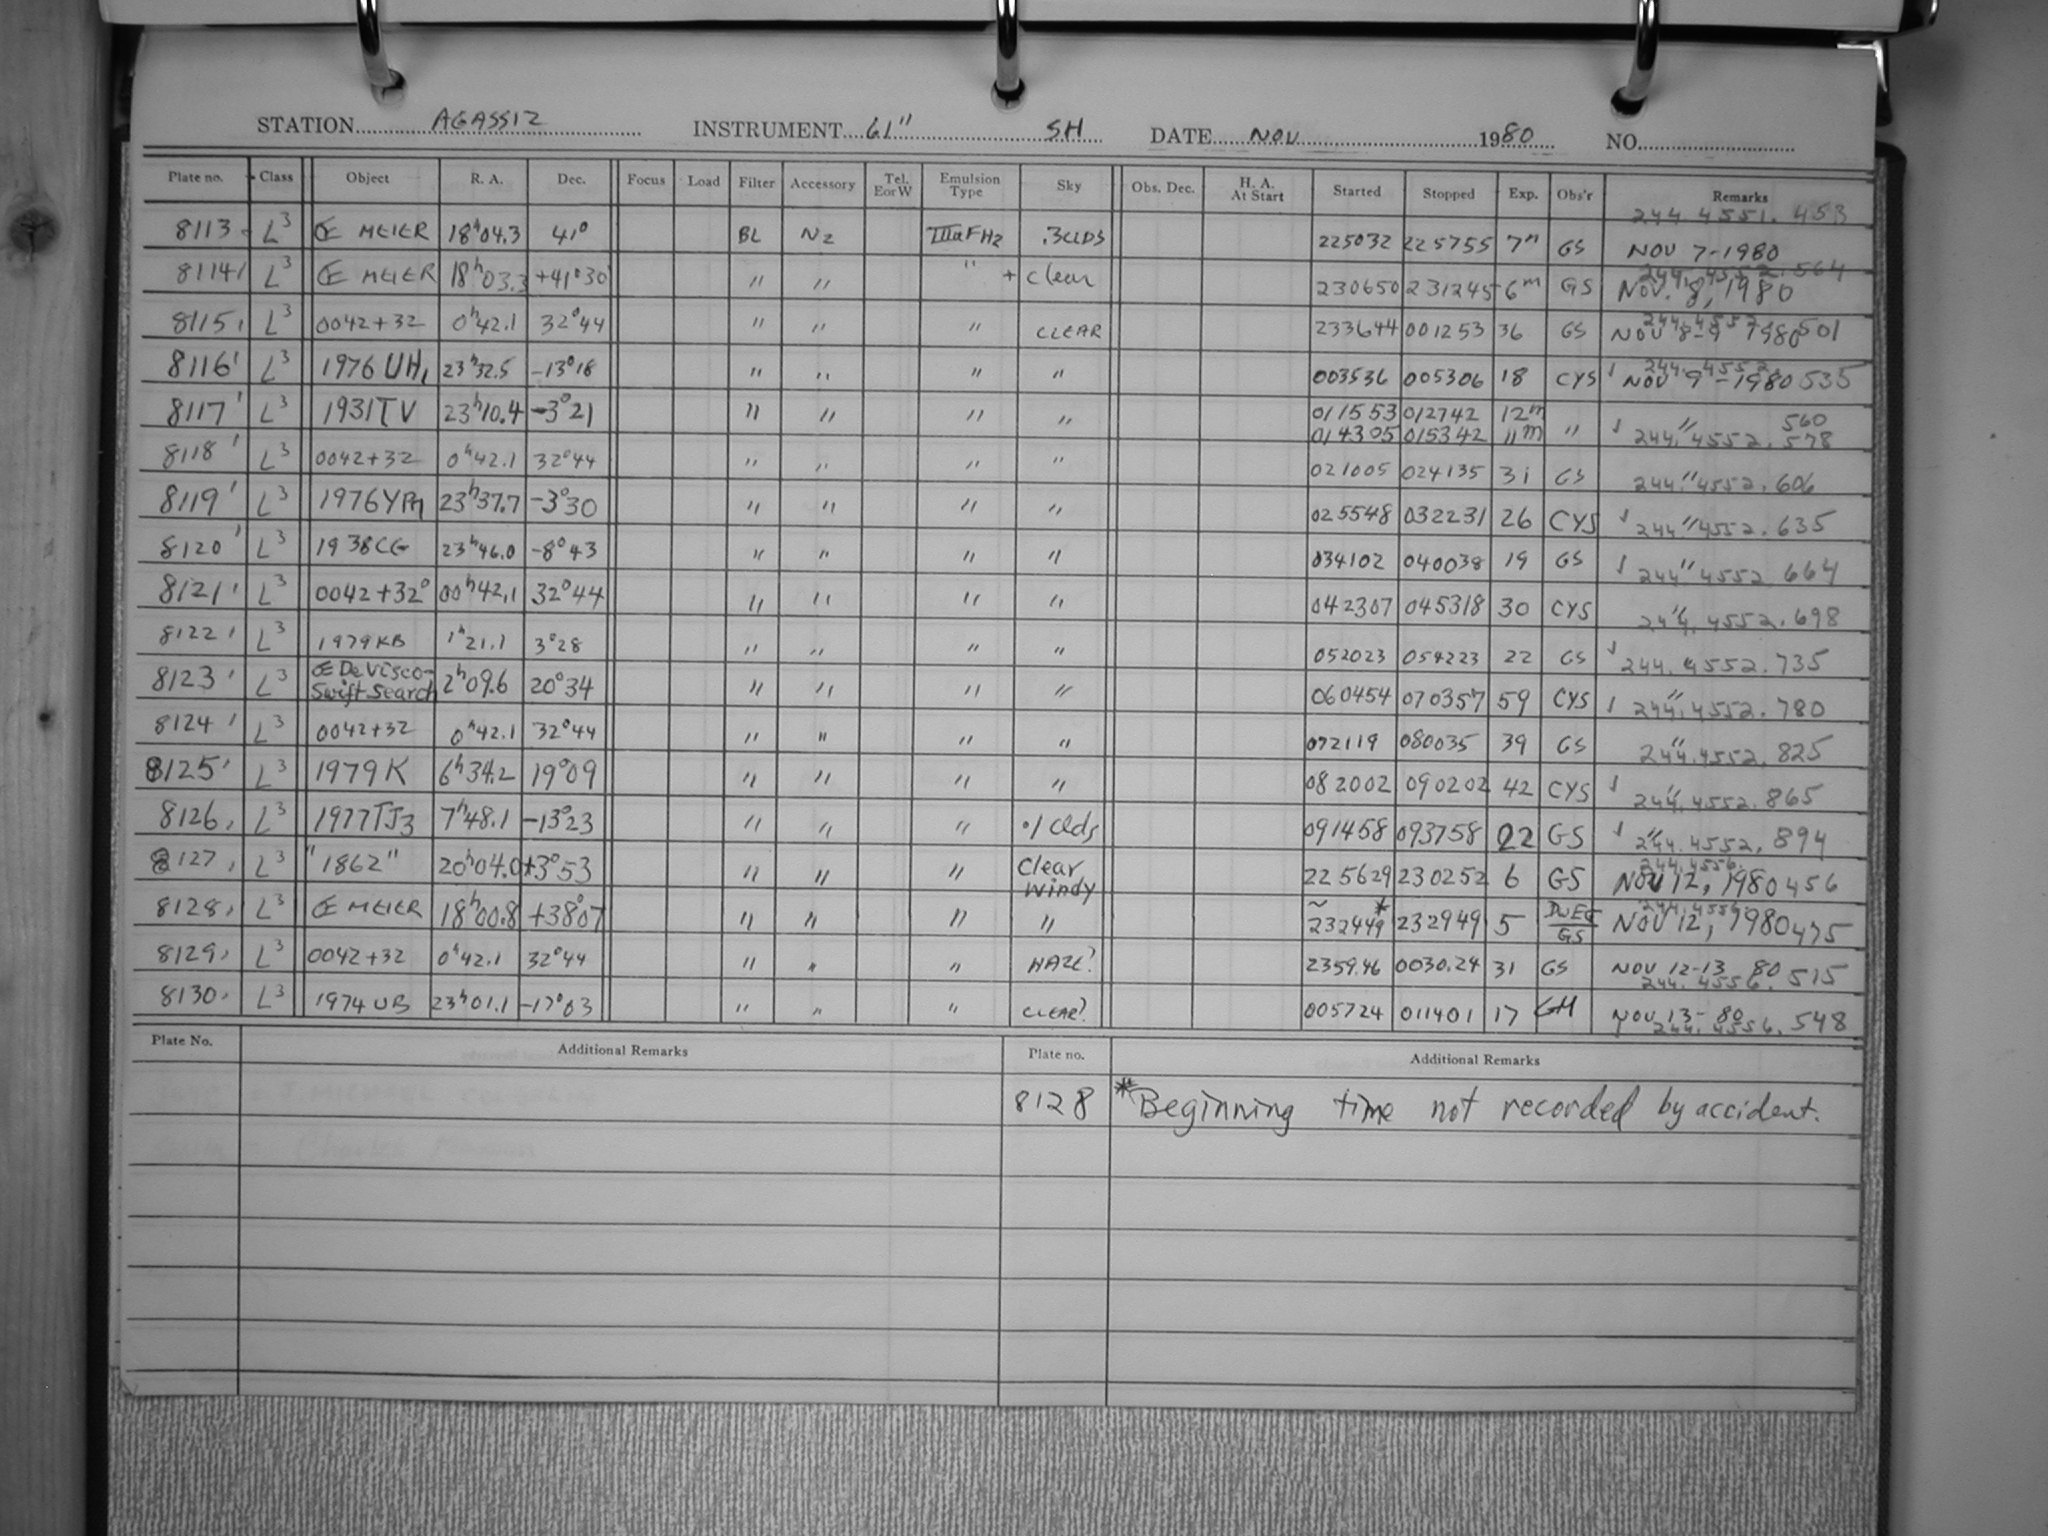 STATION AGASSIZ INSTRUMENT 61" SH DATE NOV 1980 NO.
Plate no. Class Object R. A. Dec. Focus Load Filter Accessory Tel. E or W Emulsion Type Sky Obs. Dec. H. A. At Start Started Stopped Exp. Obs'r Remarks
8113 L3 Œ MEIER 18h04.3 41° BL N2 IIIaFH2 .3CLDS 225032 225755 7m GS 244.4551.453 NOV 7-1980
8114 L3 Œ MEIER 18h03.3 +41°30 " " " + clear 230650 231245 6m GS 244.4552.564 NOV. 8, 1980
8115 L3 0042+32 0h42.1 32°44 " " " CLEAR 233644 001253 36 GS 244.4552.501 NOV 8-9 1980
8116 L3 1976 UH1 23h32.5 -13°18 " " " " 003536 005306 18 CYS 244.4552.535 NOV 9-1980
8117 L3 1931TV 23h10.4 -3°21 " " " " 011553 012742 12m " " 560
014305 015342 11m 244.4552.578
8118 L3 0042+32 0h42.1 32°44 " " " " 021005 024135 31 GS " 244.4552.606
8119 L3 1976YM 23h37.7 -3°30 " " " " 025548 032231 26 CYS " 244.4552.635
8120 L3 1938CG 23h46.0 -8°43 " " " " 034102 040038 19 GS " 244.4552.664
8121 L3 0042+32° 00h42.1 32°44 " " " " 042307 045318 30 CYS " 244.4552.698
8122 L3 1979KB 1h21.1 3°28 " " " " 052023 054223 22 GS 244.4552.735
8123 L3 Œ DeVisco-Swift Search 2h09.6 20°34 " " " " 060454 070357 59 CYS " 244.4552.780
8124 L3 0042+32 0h42.1 32°44 " " " " 072119 080035 39 GS " 244.4552.825
8125 L3 1979K 6h34.2 19°09 " " " " 082002 090202 42 CYS " 244.4552.865
8126 L3 1977TJ3 7h48.1 -13°23 " " " .1 Clds 091458 093758 22 GS " 244.4552.894
8127 L3 "1862" 20h04.0 +3°53 " " " Clear Windy 225629 230252 6 GS 244.4556.456 NOV 12, 1980
8128 L3 Œ MEIER 18h00.8 +38°07 " " " " ~232449* 232949 5 DWEG/GS 244.4556.475 NOV 12, 1980
8129 L3 0042+32 0h42.1 32°44 " " " HAZE? 2359.46 0030.24 31 GS NOV 12-13 80 244.4556.515
8130 L3 1974UB 23h01.1 -17°03 " " " CLEAR? 005724 011401 17 GH NOV 13-80 244.4556.548
Plate No. Additional Remarks Plate no. Additional Remarks
8128 *Beginning time not recorded by accident.